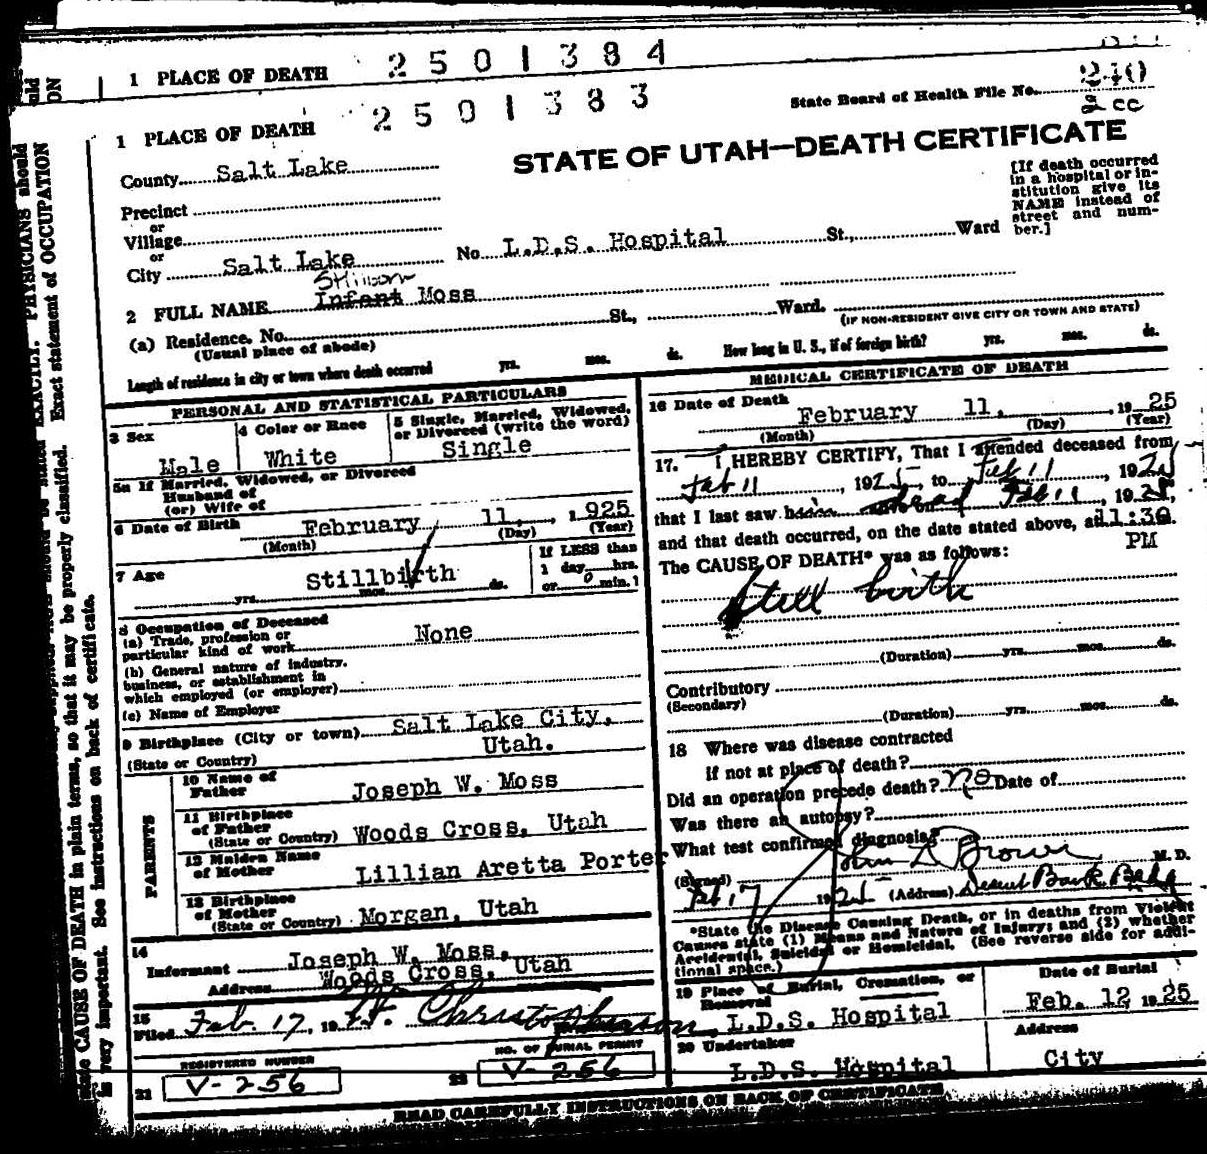 1 PLACE OF DEATH 2501384
1 PLACE OF DEATH 2501383
State Board of Health File No. 240
2 cc
STATE OF UTAH—DEATH CERTIFICATE
County Salt Lake
Precinct
or
Village
or
City Salt Lake No. L.D.S. Hospital St., Ward
[If death occurred
in a hospital or in-
stitution give its
NAME instead of
street and num-
ber.]
Stillborn
2 FULL NAME Infant Moss
(a) Residence. No. St., Ward.
(Usual place of abode)
(IF NON-RESIDENT GIVE CITY OR TOWN AND STATE)
Length of residence in city or town where death occurred yrs. mos. ds. How long in U. S., if of foreign birth? yrs. mos. ds.
PERSONAL AND STATISTICAL PARTICULARS
3 Sex
Male
4 Color or Race
White
5 Single, Married, Widowed,
or Divorced (write the word)
Single
5a If Married, Widowed, or Divorced
Husband of
(or) Wife of
6 Date of Birth February 11, 1925
(Month) (Day) (Year)
7 Age Stillbirth
yrs. mos. ds.
If LESS than
1 day hrs.
or 0 min.
8 Occupation of Deceased
(a) Trade, profession or
particular kind of work None
(b) General nature of industry,
business, or establishment in
which employed (or employer)
(c) Name of Employer
9 Birthplace (City or town) Salt Lake City,
(State or Country) Utah.
PARENTS
10 Name of
Father Joseph W. Moss
11 Birthplace
of Father
(State or Country) Woods Cross, Utah
12 Maiden Name
of Mother Lillian Aretta Porter
13 Birthplace
of Mother
(State or Country) Morgan, Utah
14
Informant Joseph W. Moss,
Address Woods Cross, Utah
15
Filed Feb. 17, 19
REGISTERED NUMBER
21 V-256
NO. OF BURIAL PERMIT
22 V-256
MEDICAL CERTIFICATE OF DEATH
16 Date of Death February 11, 1925
(Month) (Day) (Year)
17. I HEREBY CERTIFY, That I attended deceased from
Feb 11, 1925, to Feb 11, 1925
that I last saw dead Feb 11, 1925,
and that death occurred, on the date stated above, at 11:30
PM
The CAUSE OF DEATH* was as follows:
Still birth
(Duration) yrs. mos. ds.
Contributory
(Secondary)
(Duration) yrs. mos. ds.
18 Where was disease contracted
If not at place of death?
Did an operation precede death? no Date of
Was there an autopsy?
What test confirmed diagnosis?
(Signed) John Z Brown M. D.
Feb 17 1925 (Address) Deseret Bank Bldg
*State the Disease Causing Death, or in deaths from Violent
Causes state (1) Means and Nature of Injury; and (2) whether
Accidental, Suicidal or Homicidal. (See reverse side for addi-
tional space.)
19 Place of Burial, Cremation, or
Removal
L.D.S. Hospital
Date of Burial
Feb. 12 1925
20 Undertaker
L.D.S. Hospital
Address
City
READ CAREFULLY INSTRUCTIONS ON BACK OF CERTIFICATE
PHYSICIANS should
Exact statement of OCCUPATION
CAUSE OF DEATH in plain terms, so that it may be properly classified.
is very important. See instructions on back of certificate.